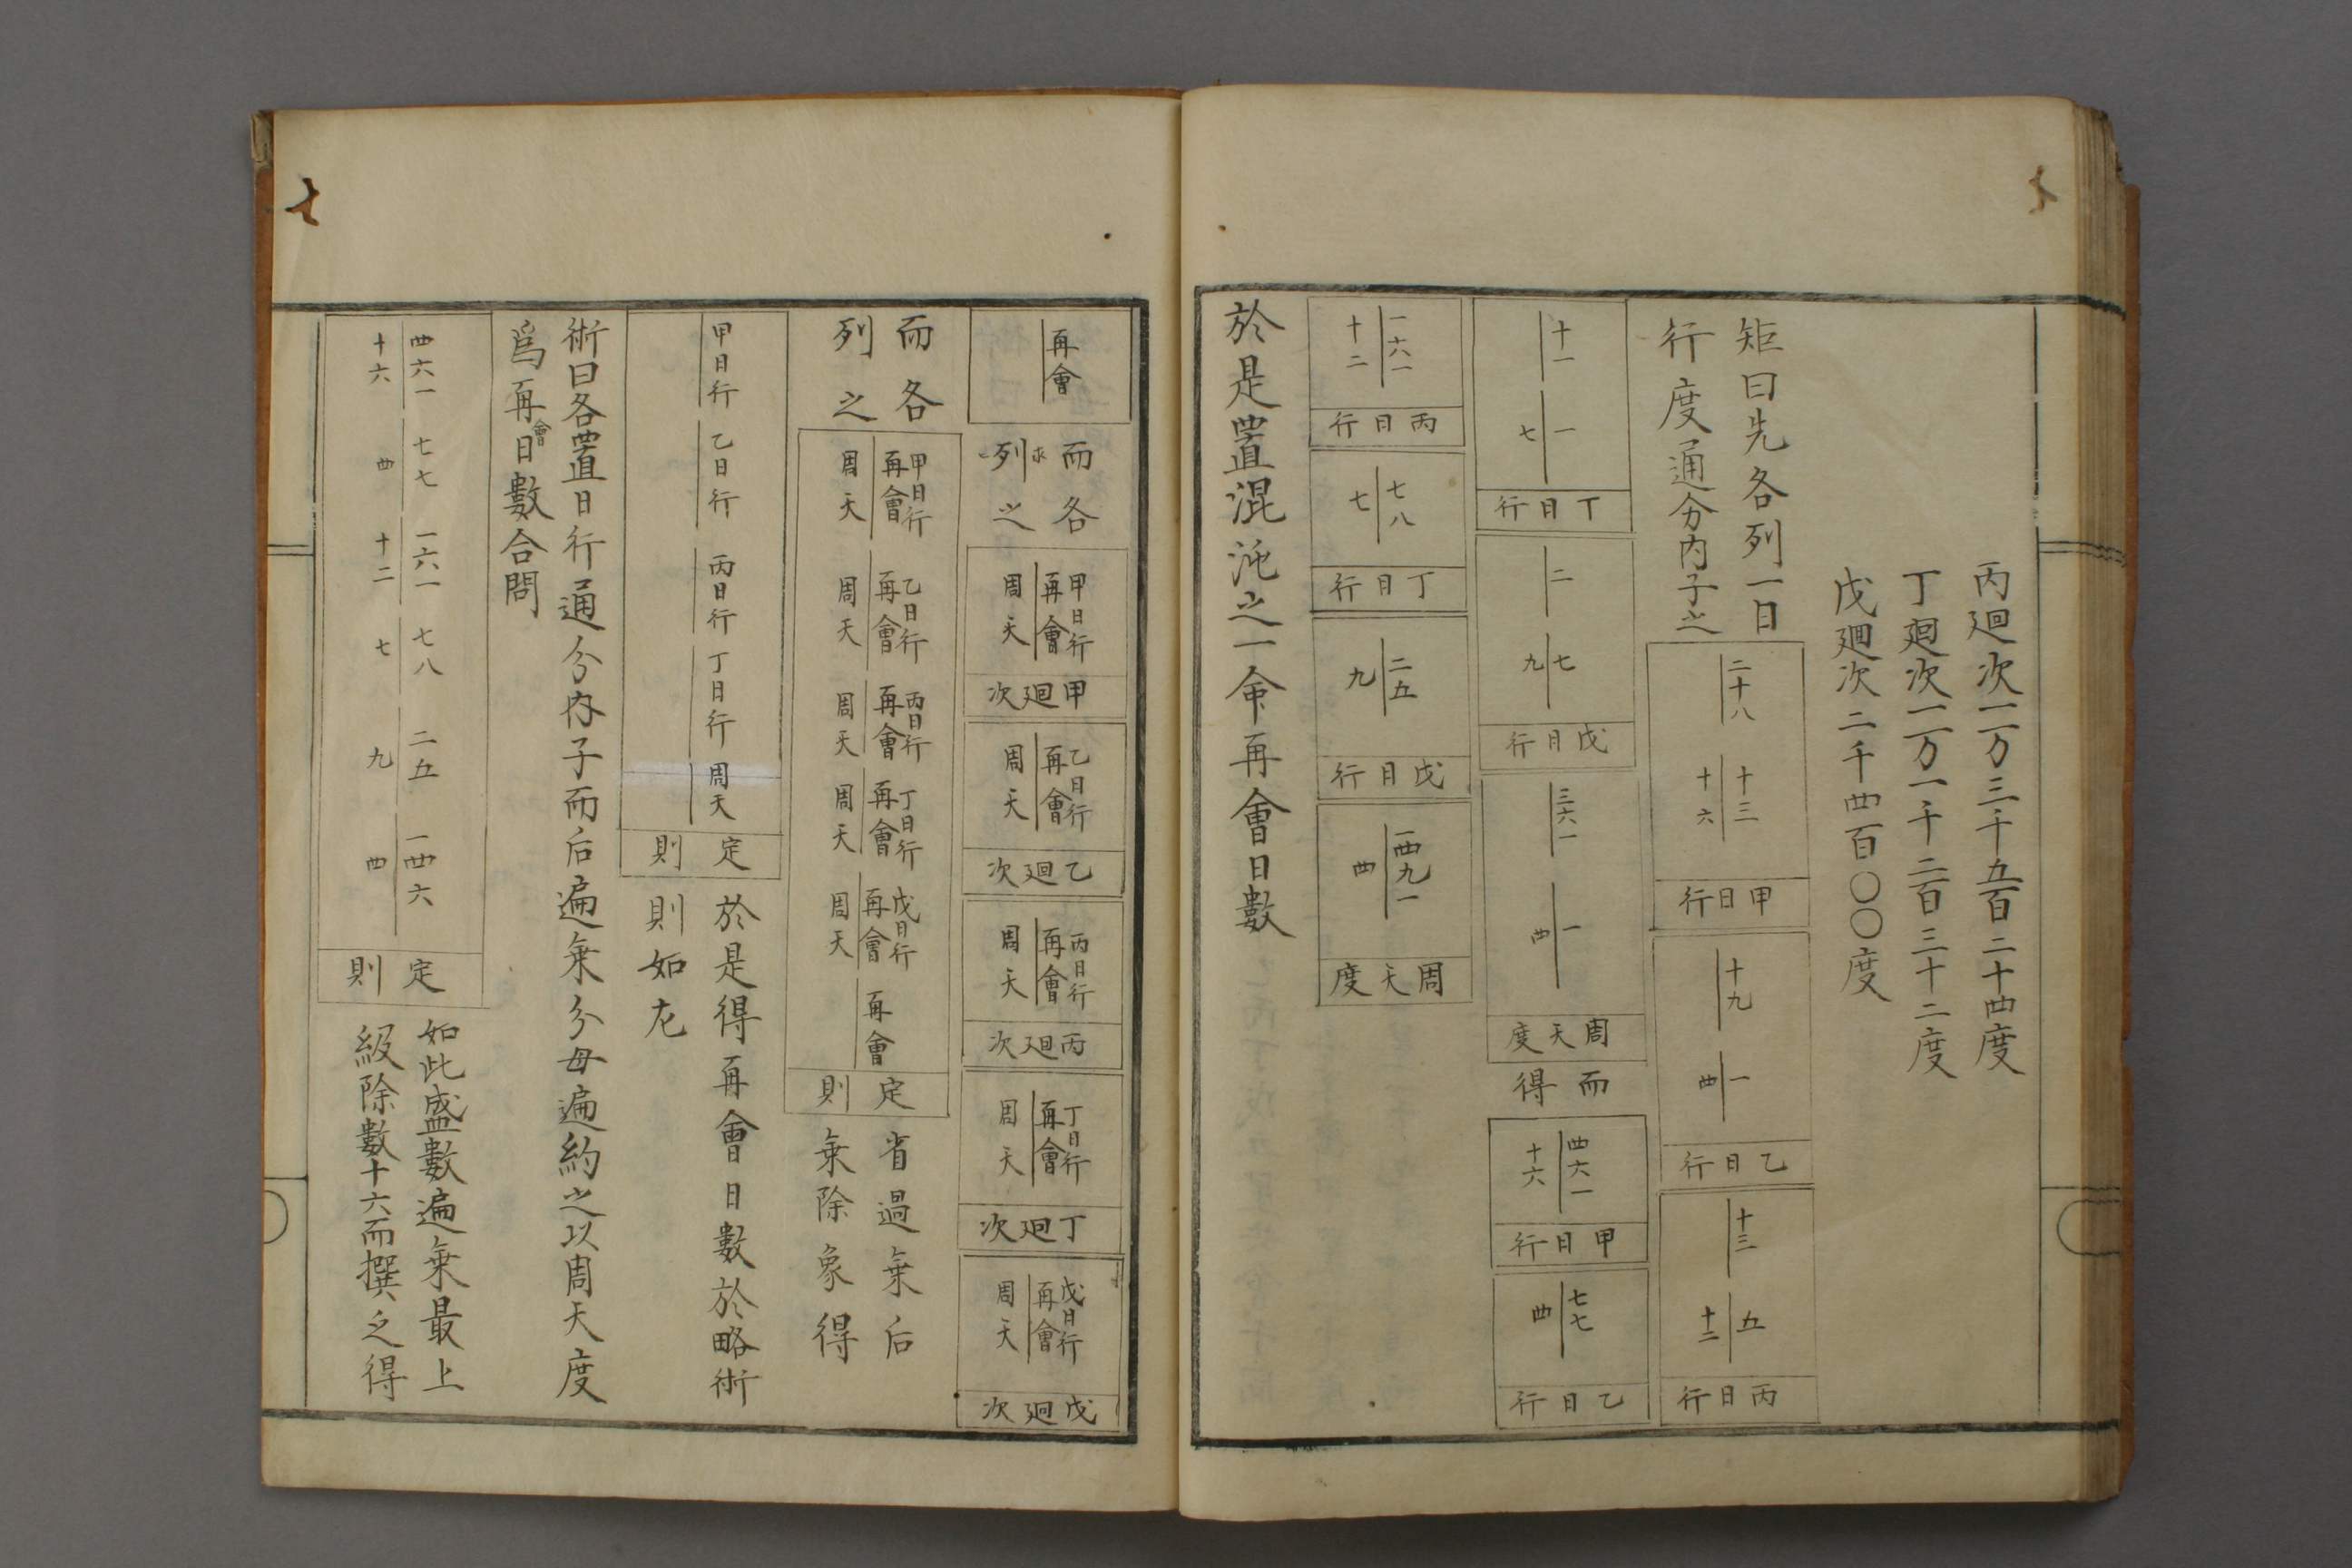 丙廻次一万三千五百二十四度
丁廻次一万一千二百三十二度
戊廻次二千四百〇〇度
矩曰先各列一日
行度通分内子之
二十八
十三
十六
甲日行
十九
一
四
乙日行
十三
五
十二
丙日行
十一
一
七
丁日行
二
七
九
戊日行
三六一
一
四
周天度
而得
四六一
十六
甲日行
七七
四
乙日行
一六一
十二
丙日行
七八
七
丁日行
二五
九
戊日行
一四九一
四
周天度
於是置混沌之一命再會日數
再會
而各
求
列之
甲日行
再會
周天
甲廻次
乙日行
再會
周天
乙廻次
丙日行
再會
周天
丙廻次
丁日行
再會
周天
丁廻次
戊日行
再會
周天
戊廻次
而各
列之
甲日行
再會
周天
乙日行
再會
周天
丙日行
再會
周天
丁日行
再會
周天
戊日行
再會
周天
再會
定則
省過乘后
乘除象得
甲日行
乙日行
丙日行
丁日行
周天
定則
於是得再會日數於略術
則如左
術曰各置日行通分内子而后遍乘分母遍約之以周天度
爲再會日數合問
四六一 七七 一六一 七八 二五 一四六
十六 四 十二 七 九 四
定則
如此盛數遍乘最上
級除數十六而撰之得